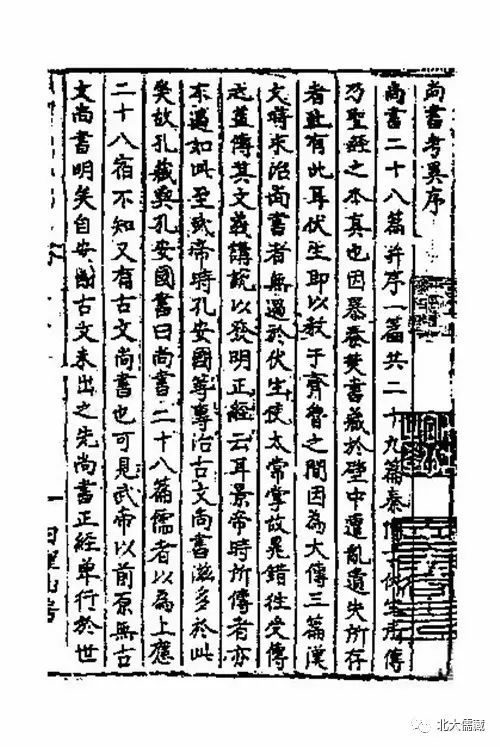 尚書考異序
尚書二十八篇并序一篇共二十九篇秦博士伏生所傳
乃聖經之本真也因暴秦焚書藏於壁中遭亂遺失所存
者止有此耳伏生即以教于齊魯之間因為大傳三篇漢
文時求治尚書者無過於伏生使太常掌故晁錯往受傳
之蓋傳其文義講說以發明正經云耳景帝時所傳者亦
不過如此至武帝時孔安國等專治古文尚書滋多於此
矣故孔藏與孔安國書曰尚書二十八篇儒者以為上應
二十八宿不知又有古文尚書也可見武帝以前原無古
文尚書明矣自安國古文未出之先尚書正經單行於世
北大儒藏